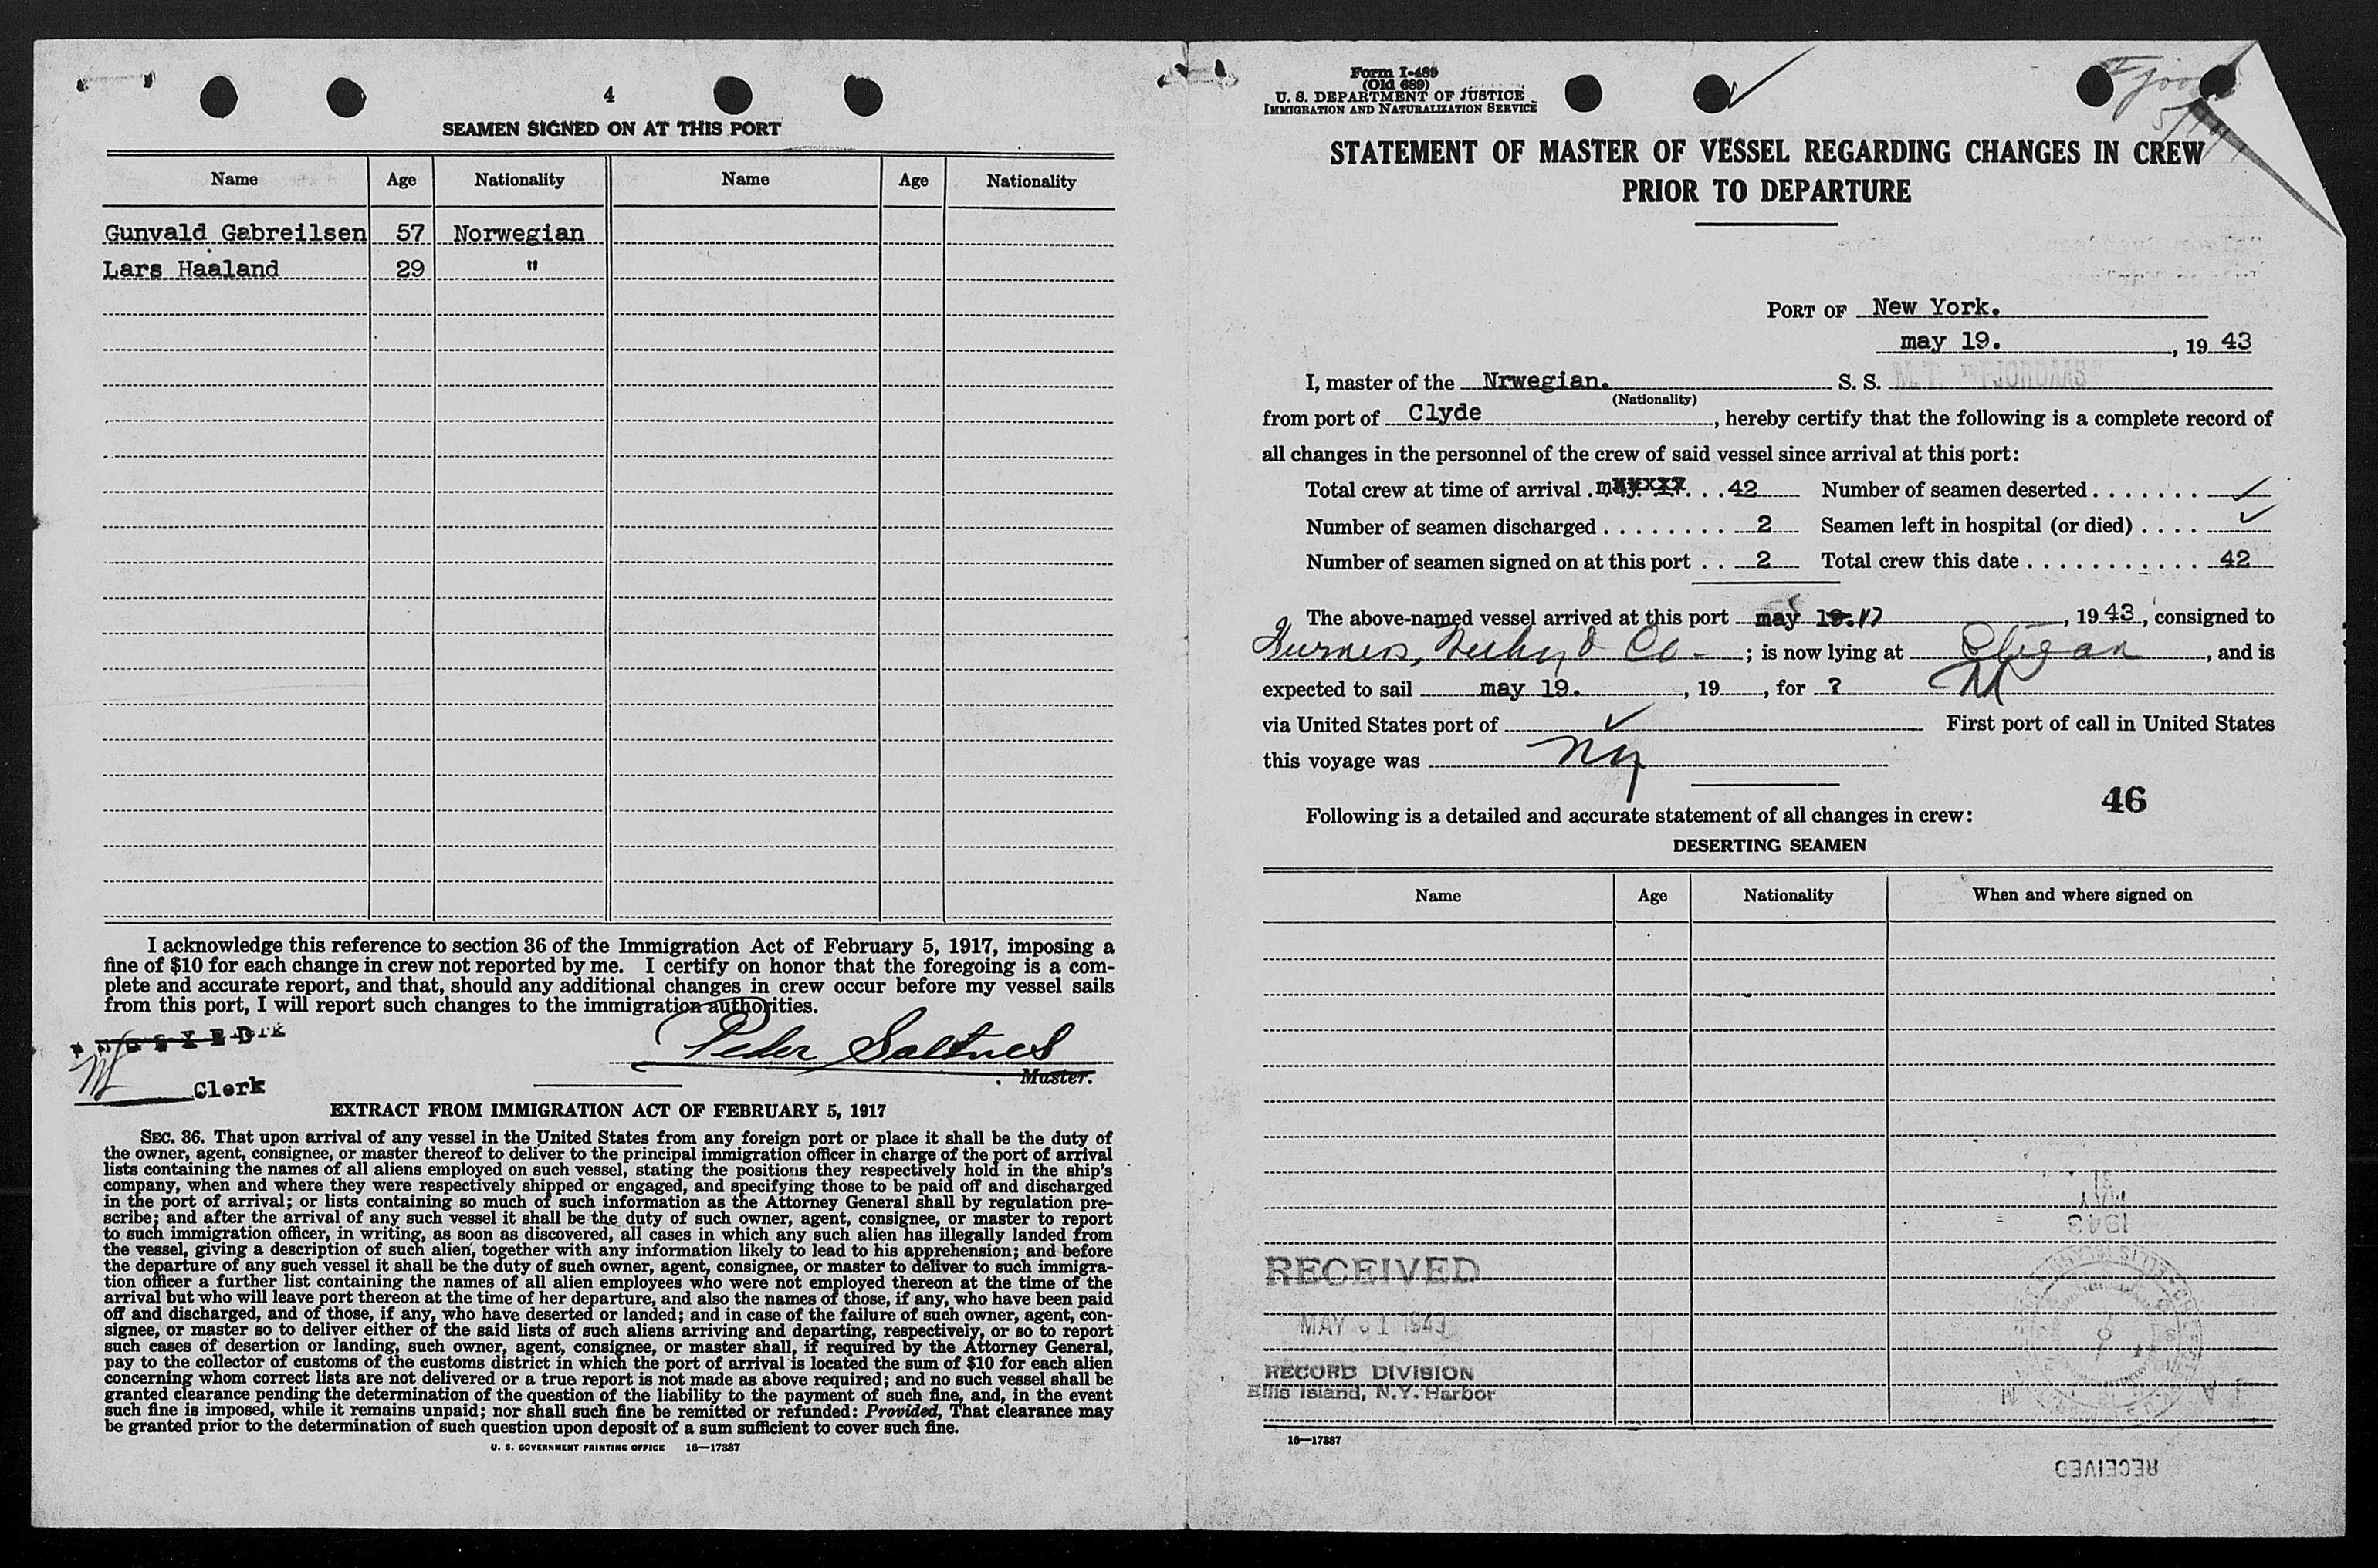 4
SEAMEN SIGNED ON AT THIS PORT
Name Age Nationality Name Age Nationality
Gunvald Gabreilsen 57 Norwegian
Lars Haaland 29 "
I acknowledge this reference to section 36 of the Immigration Act of February 5, 1917, imposing a
fine of $10 for each change in crew not reported by me. I certify on honor that the foregoing is a com-
plete and accurate report, and that, should any additional changes in crew occur before my vessel sails
from this port, I will report such changes to the immigration authorities.
Peder Saltnes
Master.
Clerk
EXTRACT FROM IMMIGRATION ACT OF FEBRUARY 5, 1917
SEC. 36. That upon arrival of any vessel in the United States from any foreign port or place it shall be the duty of
the owner, agent, consignee, or master thereof to deliver to the principal immigration officer in charge of the port of arrival
lists containing the names of all aliens employed on such vessel, stating the positions they respectively hold in the ship's
company, when and where they were respectively shipped or engaged, and specifying those to be paid off and discharged
in the port of arrival; or lists containing so much of such information as the Attorney General shall by regulation pre-
scribe; and after the arrival of any such vessel it shall be the duty of such owner, agent, consignee, or master to report
to such immigration officer, in writing, as soon as discovered, all cases in which any such alien has illegally landed from
the vessel, giving a description of such alien, together with any information likely to lead to his apprehension; and before
the departure of any such vessel it shall be the duty of such owner, agent, consignee, or master to deliver to such immigra-
tion officer a further list containing the names of all alien employees who were not employed thereon at the time of the
arrival but who will leave port thereon at the time of her departure, and also the names of those, if any, who have been paid
off and discharged, and of those, if any, who have deserted or landed; and in case of the failure of such owner, agent, con-
signee, or master so to deliver either of the said lists of such aliens arriving and departing, respectively, or so to report
such cases of desertion or landing, such owner, agent, consignee, or master shall, if required by the Attorney General,
pay to the collector of customs of the customs district in which the port of arrival is located the sum of $10 for each alien
concerning whom correct lists are not delivered or a true report is not made as above required; and no such vessel shall be
granted clearance pending the determination of the question of the liability to the payment of such fine, and, in the event
such fine is imposed, while it remains unpaid; nor shall such fine be remitted or refunded: Provided, That clearance may
be granted prior to the determination of such question upon deposit of a sum sufficient to cover such fine.
U. S. GOVERNMENT PRINTING OFFICE 16—17387
Form I-489
(Old 689)
U. S. DEPARTMENT OF JUSTICE
IMMIGRATION AND NATURALIZATION SERVICE
STATEMENT OF MASTER OF VESSEL REGARDING CHANGES IN CREW
PRIOR TO DEPARTURE
PORT OF New York.
may 19. , 19 43
I, master of the Nrwegian. S. S. M.T. "FJORDAAS"
(Nationality)
from port of Clyde , hereby certify that the following is a complete record of
all changes in the personnel of the crew of said vessel since arrival at this port:
Total crew at time of arrival 42 Number of seamen deserted ✓
Number of seamen discharged 2 Seamen left in hospital (or died) ✓
Number of seamen signed on at this port 2 Total crew this date 42
The above-named vessel arrived at this port may 17 , 19 43, consigned to
Co ; is now lying at , and is
expected to sail may 19. , 19 , for ?
via United States port of ✓ First port of call in United States
this voyage was NY
46
Following is a detailed and accurate statement of all changes in crew:
DESERTING SEAMEN
Name Age Nationality When and where signed on
RECEIVED
MAY 31 1943
RECORD DIVISION
Ellis Island, N.Y. Harbor
16—17387
RECEIVED